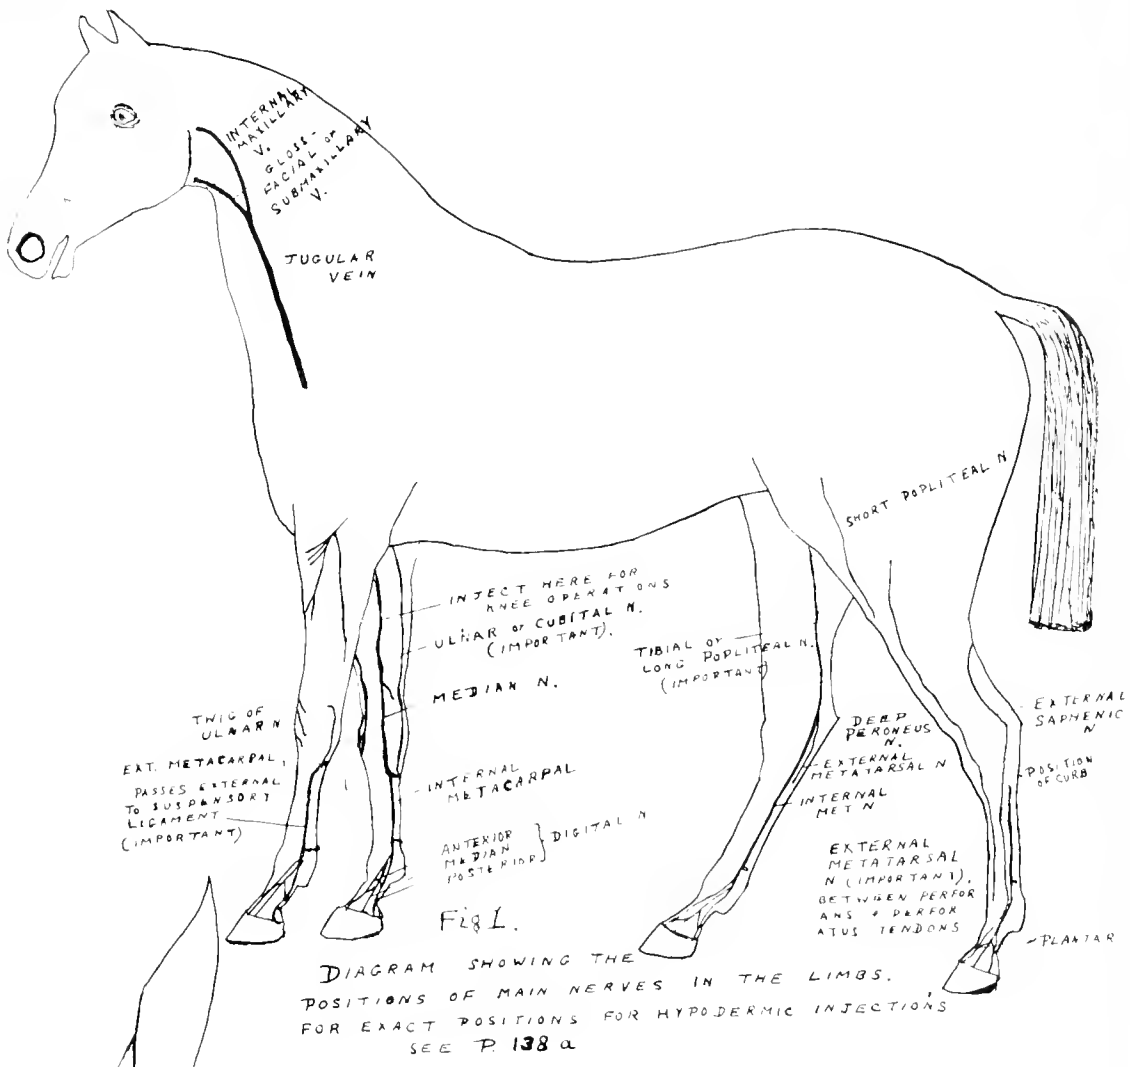 INTERNAL
MAXILLARY
V.
GLOSS-
FACIAL or
SUBMAXILLARY
V.
JUGULAR
VEIN
SHORT POPLITEAL N
INJECT HERE FOR
KNEE OPERATIONS
ULNAR or CUBITAL N.
(IMPORTANT).
MEDIAN N.
TIBIAL or
LONG POPLITEAL N.
(IMPORTANT)
TWIG OF
ULNAR N
EXT. METACARPAL,
PASSES EXTERNAL
TO SUSPENSORY
LIGAMENT
(IMPORTANT)
INTERNAL
METACARPAL
ANTERIOR
MEDIAN
POSTERIOR
DIGITAL N
DEEP
PERONEUS
N.
EXTERNAL
METATARSAL N
INTERNAL
MET N
EXTERNAL
SAPHENIC
N
POSITION
OF CURB
EXTERNAL
METATARSAL
N (IMPORTANT),
BETWEEN PERFOR
ANS + PERFOR
ATUS TENDONS
PLANTAR
Fig 1.
DIAGRAM SHOWING THE
POSITIONS OF MAIN NERVES IN THE LIMBS.
FOR EXACT POSITIONS FOR HYPODERMIC INJECTIONS
SEE P. 138 a